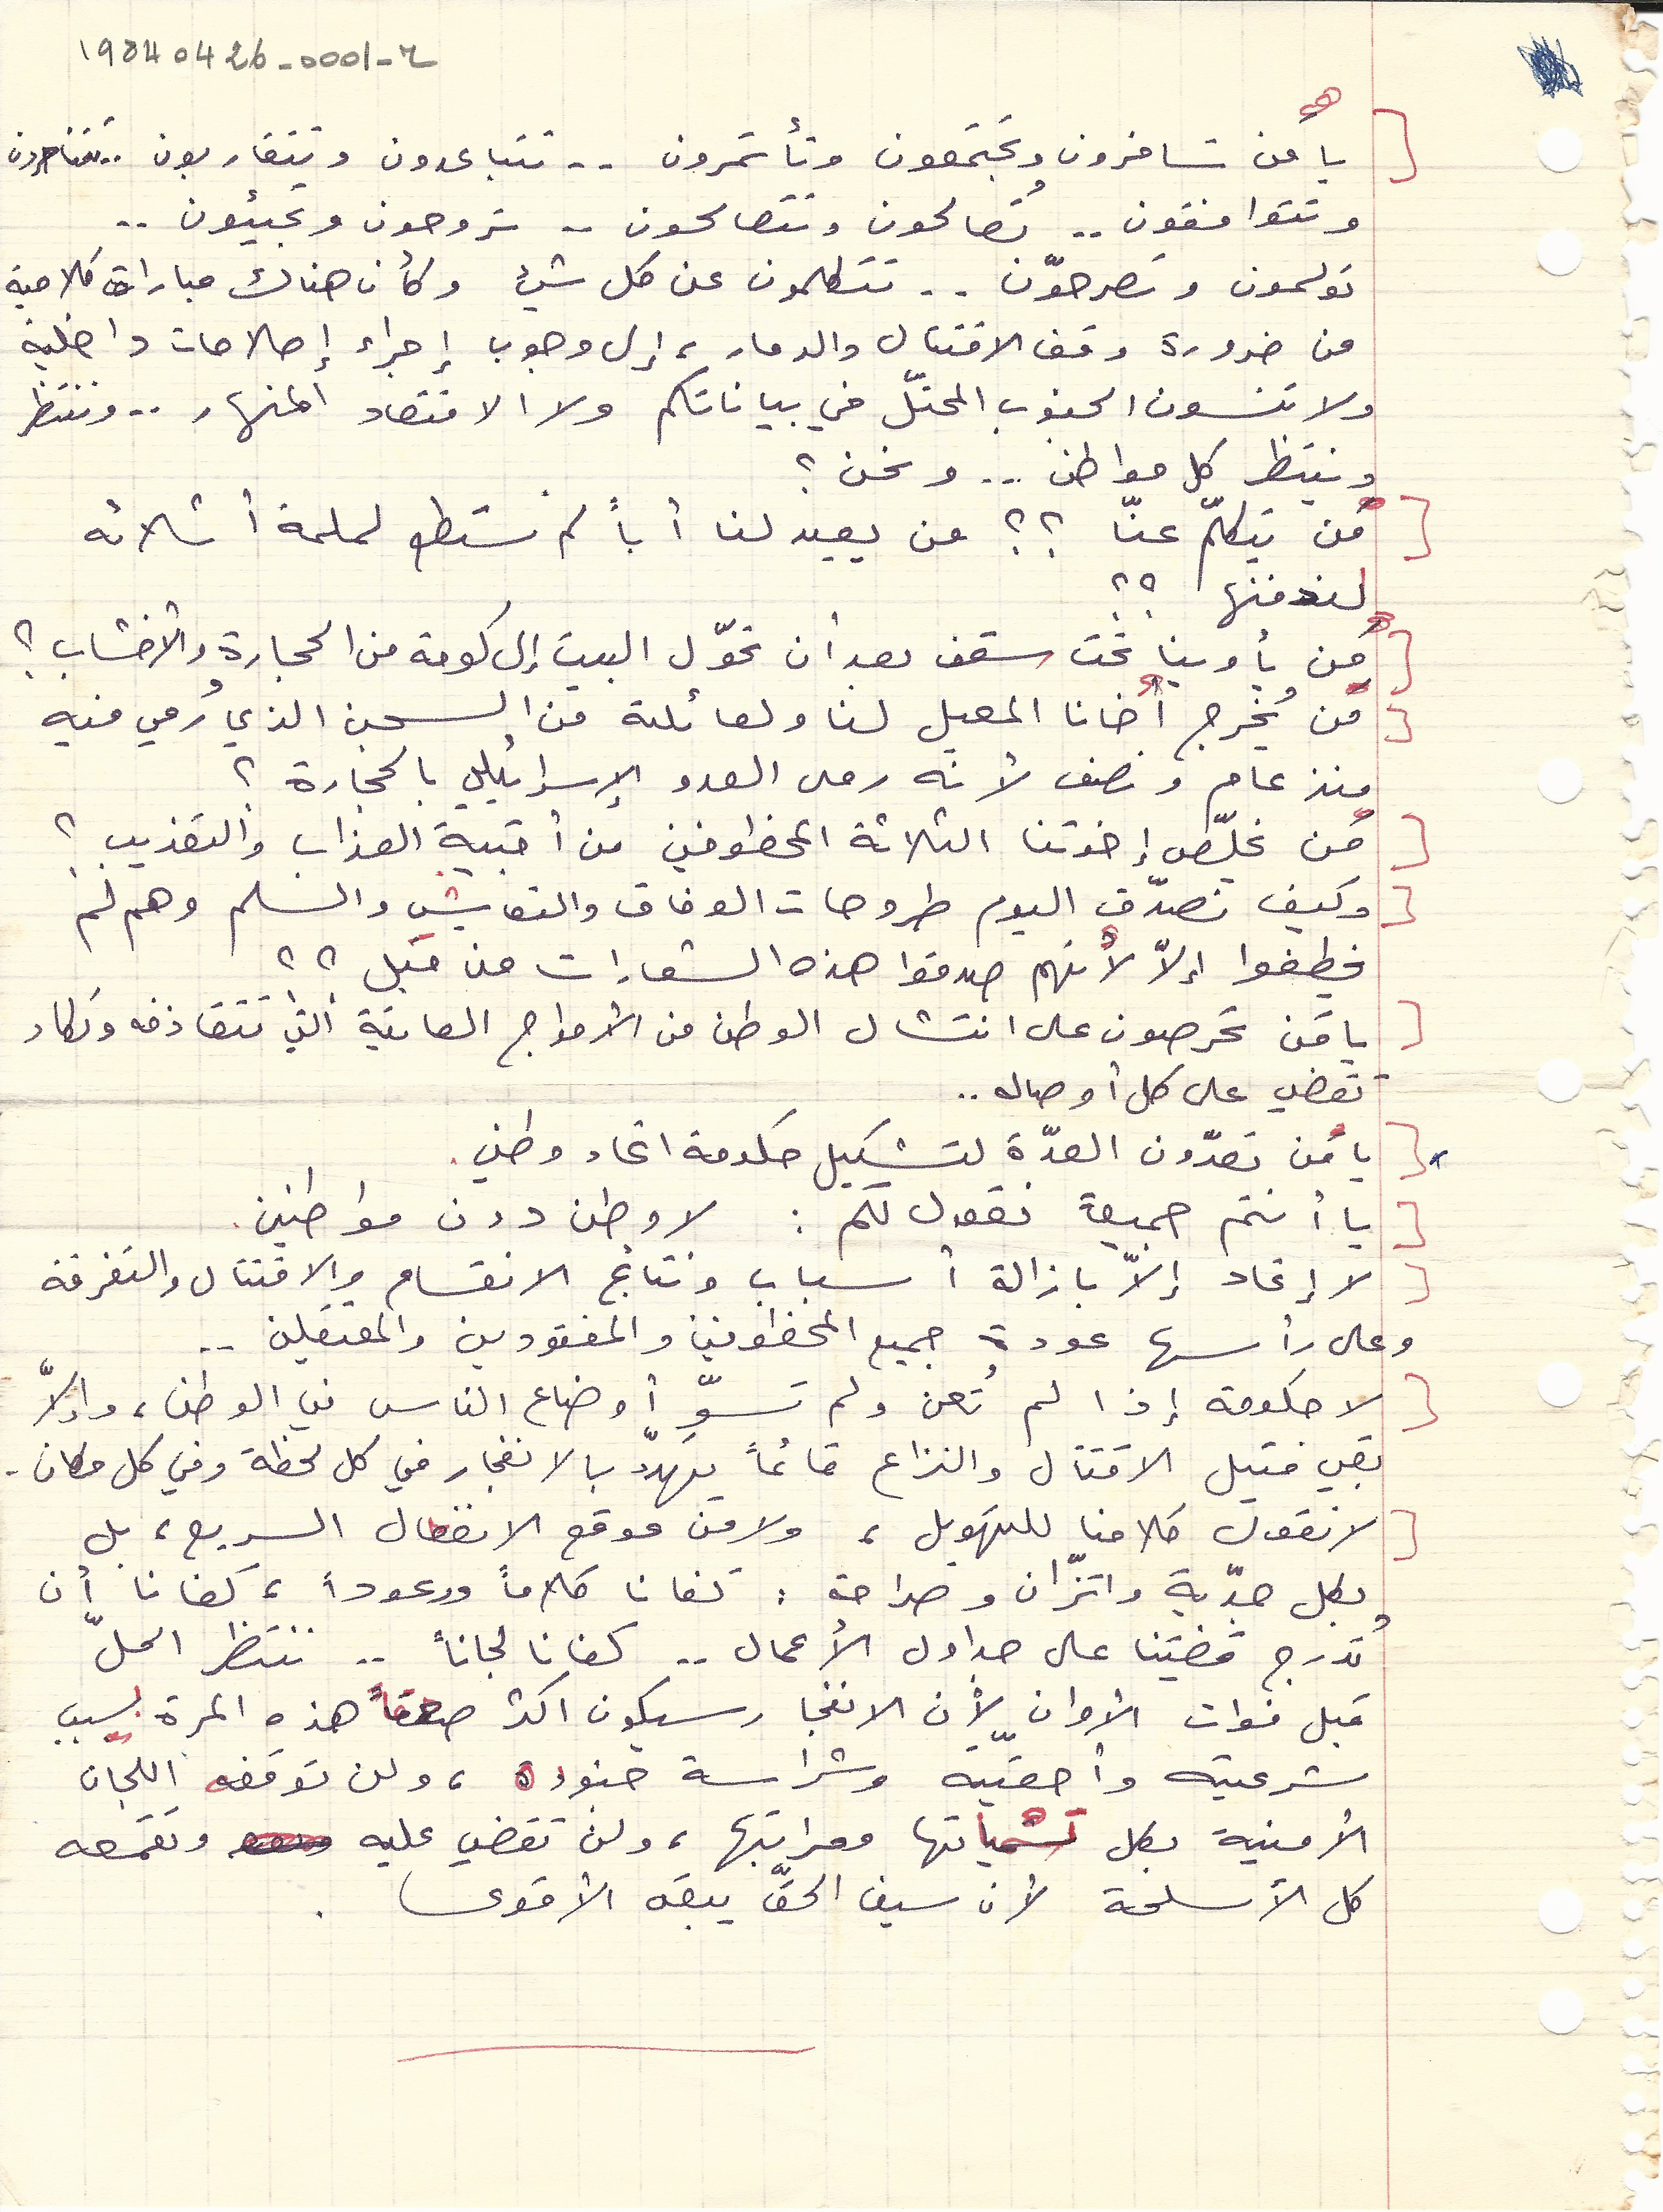 19840426-0001-2
يا مَن تسافرون وتجتمعون وتأتمرون .. تتباعدون وتتقاربون .. تتناحرون
وتتوافقون .. تُصالحون وتتصالحون .. تروحون وتجيئون ..
تولمون وتصرحّون .. تتكلمون عن كل شيء وكأن هناك مباراة كلامية
من ضرورة وقف الاقتتال والدمار، إلى وجوب إجراء إصلاحات داخلية
ولا تنسون الجنوب المحتلّ في بياناتكم ولا الاقتصاد المنهار .. وننتظر
وينتظر كل مواطن ... ونحن ؟
مَن يتكلّم عنّا ؟؟ من يعيد لنا أباً لم نستطع لملمة أشلائه
لندفنها ؟؟
مَن يأوينا تحت سقف بعد أن تحوّل البيت إلى كومة من الحجارة والأخشاب ؟
مَن يُخرج أخانا المعيل لنا ولعائلته من السجن الذي رُمي فيه
منذ عام ونصف لأنه رمى العدو الإسرائيلي بالحجارة ؟
مَن يخلّص إخوتنا الثلاثة المخطوفين من أقبية العذاب والتعذيب ؟
وكيف نصدّق اليوم طروحات الوفاق والتعايش والسلم وهم لم
يخطفوا إلاّ لأنهم صدقوا هذه الشعارات من قبل ؟؟
يا مَن تحرصون على انتشال الوطن من الأمواج العاتية التي تتقاذفه وتكاد
تقضي على كل أوصاله ..
يا مَن تعدّون العدّة لتشكيل حكومة اتحاد وطني .
يا أنتم جميعاً نقول لكم : لا وطن دون مواطنين .
لا إتحاد إلاّ بازالة أسباب ونتائج الانقسام والاقتتال والتفرقة
وعلى رأسها عودة جميع المخطوفين والمفقودين والمعتقلين ..
لا حكومة إذا لم تُعن ولم تسوِّ أوضاع الناس في الوطن، وإلاّ
بقي فتيل الاقتتال والنزاع قائماً يهدّد بالانفجار في كل لحظة وفي كل مكان .
لا نقول كلامنا للتهويل، ولا من موقع الانفعال السريع، بل
بكل جدّية واتزّان وصراحة : كفانا كلاماً ووعوداً، كفانا أن
تُدرج قضيتنا على جداول الأعمال .. كفانا لجاناً .. ننتظر الحلّ
قبل فوات الأوان لأن الانفجار سيكون اكثر صعقاً هذه المرة بسبب
شرعيته وأحقيّته وشراسة جنوده، ولن توقفه اللجان
الأمنية بكل تسمياتها ومراتبها، ولن تقضي عليه وتقمعه
كل الأسلحة لأن سيف الحقّ يبقى الأقوى .